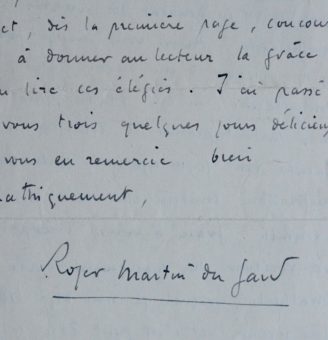 et, dès la première page, concou
à donner au lecteur la grâce
lire ces élégies. J'ai passé
vous trois quelques jours délicieux
vous en remercie bien
athiquement,
Roger Martin du Gard